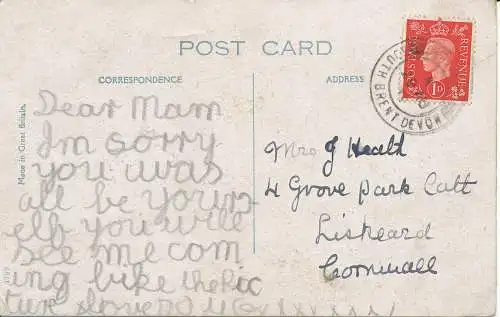 POST CARD
CORRESPONDENCE
ADDRESS
POSTAGE
REVENUE
1D
SOUTH BRENT DEVON
Made in Great Britain.
Dear Mam
Im sorry
you was
all be yours
elb you will
see me com
ing bike the Pic
ture
Mrs J Heald
4 Grove Park Catt
Liskeard
Cornwall